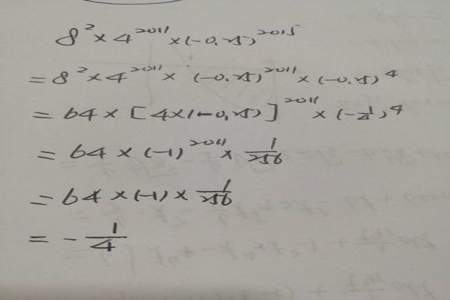 8² × 4²⁰¹¹ × (-0.25)²⁰¹⁵
= 8² × 4²⁰¹¹ × (-0.25)²⁰¹¹ × (-0.25)⁴
= 64 × [4×(-0.25)]²⁰¹¹ × (-1/4)⁴
= 64 × (-1)²⁰¹¹ × 1/256
= 64 × (-1) × 1/256
= - 1/4